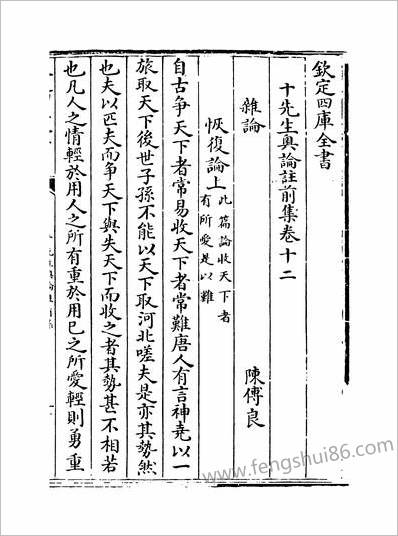 欽定四庫全書
十先生奧論註前集卷十二
雜論　陳傅良
恢復論上此篇論收天下者
有所愛是以難
自古爭天下者常易收天下者常難唐人有言神堯以一
旅取天下後世子孫不能以天下取河北嗟夫是亦其勢然
也夫以匹夫而爭天下與失天下而收之者其勢甚不相若
也凡人之情輕於用人之所有重於用已之所愛輕則勇重
www.fengshui86.com